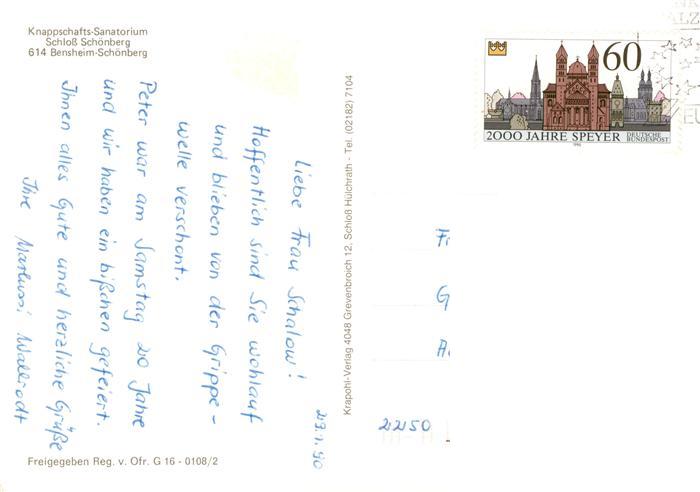 Knappschafts-Sanatorium
Schloß Schönberg
614 Bensheim-Schönberg
29.1.90
Liebe Frau Schalow!
Hoffentlich sind Sie wohlauf
und blieben von der Grippe-
welle verschont.
Peter war am Samstag 20 Jahre
und wir haben ein bißchen gefeiert.
Ihnen alles Gute und herzliche Grüße
Ihre
Freigegeben Reg. v. Ofr. G 16 - 0108/2
Krapohl-Verlag 4048 Grevenbroich 12, Schloß Hülchrath - Tel. (02182) 7104
60
2000 JAHRE SPEYER
DEUTSCHE
BUNDESPOST
1990
F
G
A
2250